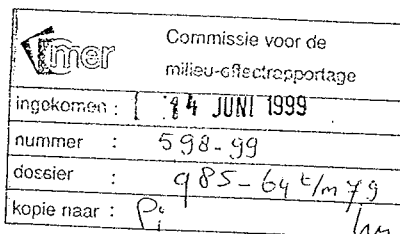 mer
Commissie voor de
milieu-effectrapportage
ingekomen : 14 JUNI 1999
nummer : 598-99
dossier : 985-64 t/m 79
kopie naar : Pi